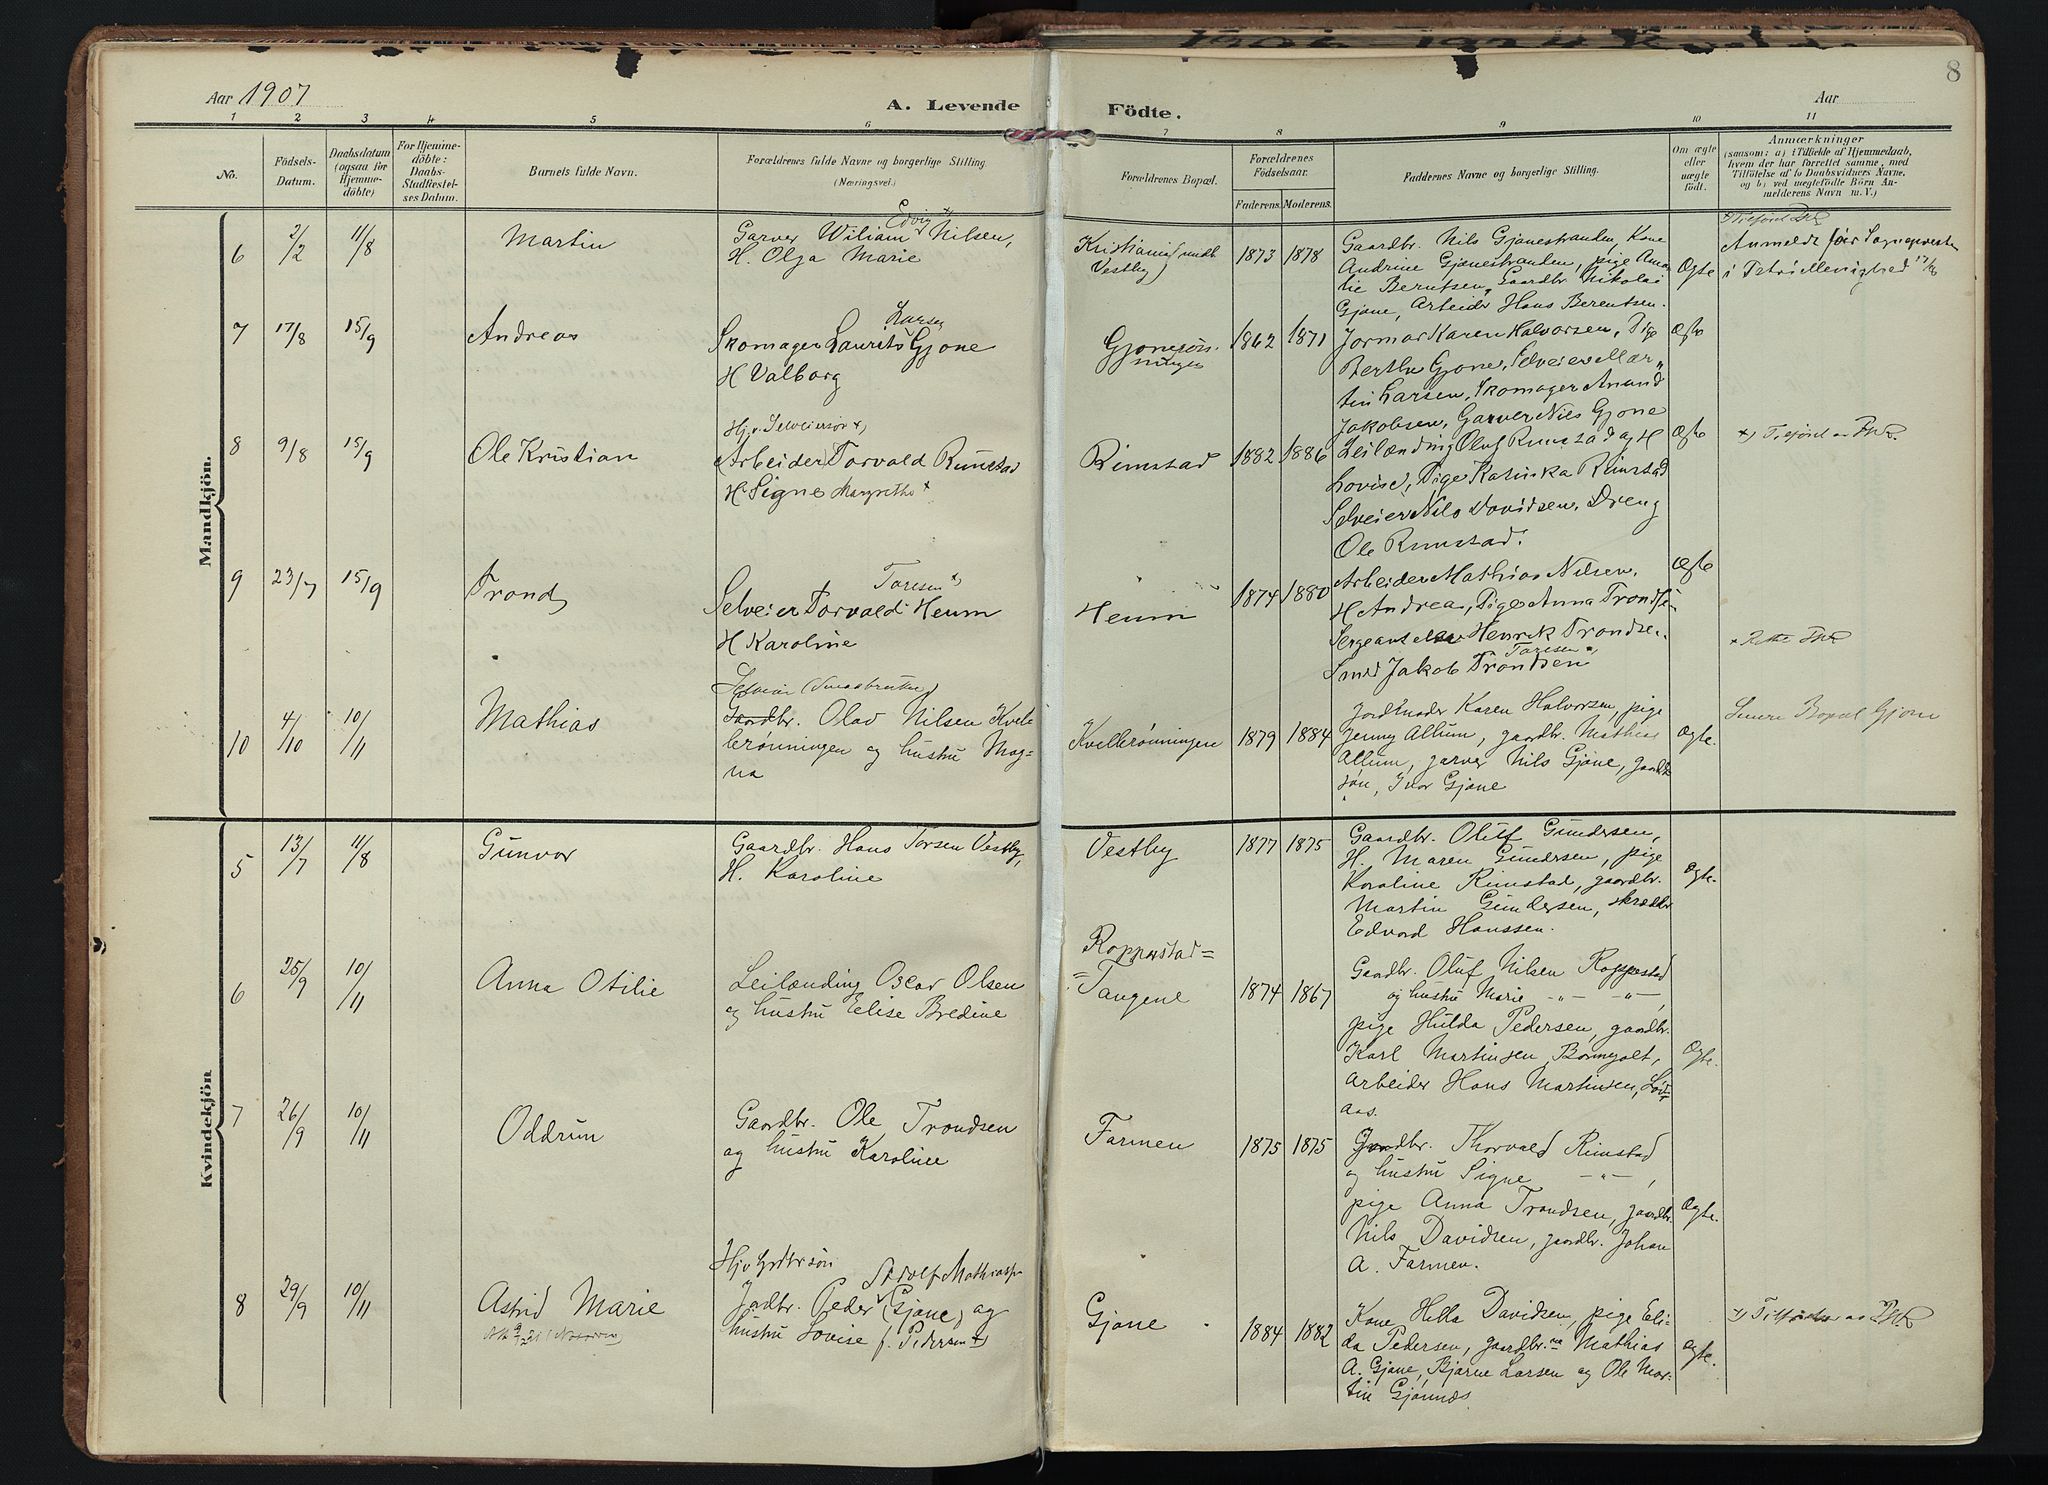 8
Aar 1907
A. Levende
Födte.
Aar
1 2 3 4 5 6 7 8 9 10 11
No.
Födsels-
Datum.
Daabsdatum
(ogsaa for
Hjemme-
döbte)
For Hjemme-
döbte:
Daabs-
Stadfæstel-
ses Datum.
Barnets fulde Navn.
Forældrenes fulde Navne og borgerlige Stilling.
(Næringsvei.)
Forældrenes Bopæl.
Forældrenes
Födselsaar.
Faderens. Moderens.
Faddernes Navne og borgerlige Stilling.
Om ægte
eller
uægte
født.
Anmærkninger
(saasom: a) i Tilfælde af Hjemmedaab,
hvem der har forrettet samme, med
Tilföielse af to Daabsvidners Navne,
og b) ved uægtefödte Börn An-
melderens Navn m. V.)
Mandkjön.
6 2/2 11/8 Martin
Edvig x)
Garver Wiliam Nilsen,
H. Olga Marie
Kristiania (mdt.
Vestby)
1873 1878
Gaardbr. Nils Gjønestranden, Kone
Andrine Gjønestranden, pige Ama-
lie Berntsen, Gaardbr. Nikolai
Gjøne, Arbeider Hans Berentsen.
Ægte
Anmeldt for Sognepresten
i Petri Menighed 17/8
7 17/8 15/9 Andreas
Larsen
Skomager Laurits Gjone
H Valborg
Gjonerøn-
ningen
1862 1871
Jormor Karen Halvorsen, Pige
Berthe Gjone, Selveier Mar-
tin Larsen, Skomager Anund
Jakobsen, Garver Nils Gjone
Ægte
8 9/8 15/9 Ole Kristian
Hj. v. Selveiersøn x)
Arbeider Torvald Rimstad
H Signe Margrethe x
Rimstad
1882 1886
Leilænding Oluf Rimstad og H
Lovise, Pige Katinka Rimstad
Selveier Nils Davidsen, Dreng
Ole Rimstad.
Ægte
x) Tilføiet av
9 23/7 15/9 Trond
Toresen x)
Selveier Torvald Heum
H Karoline
Heum
1874 1880
Arbeider Mathias Nilsen,
H Andrea, Pige Anna Trondsen
Sergeantelev Henrik Trondsen,
Toresen x,
Smed Jakob Trondsen
Ægte
x Rettet
10 4/10 10/11 Mathias
Selveier (Smaabruker)
Gaardbr. Olav Nilsen Kvelle-
brønningen og hustru Mag-
na
Kvellerønningen
1879 1884
Jordmoder Karen Halvorsen, pige
Jenny Allum, gaardbr. Mathias
Allum, garver Nils Gjøne, gaardbr.
søn, Ivar Gjøne
Ægte.
Senere Bopæl Gjone
Kvindekjön
5 13/7 11/8 Gunvor
Gaardbr. Hans Torsen Vestby,
H. Karoline
Vestby
1877 1875
Gaardbr. Oluf Gundersen,
H. Maren Gundersen, pige
Karoline Rimstad, gaardbr.
Martin Gundersen, skrædder
Edvard Hanssen.
Ægte.
6 25/9 10/11 Anna Otilie
Leilænding Oscar Olsen
og hustru Elise Bredine
Roppestad=
=Tangene
1874 1867
Gaardbr. Oluf Nilsen Roppestad
og hustru Marie -"- -"-,
pige Hulda Pedersen, gaardbr.
Karl Martinsen Bommgolt,
arbeider Hans Martinsen, Løv-
aas.
Ægte.
7 26/9 10/11 Oddrun
Gaardbr. Ole Trondsen
og hustru Karoline
Farmen
1875 1875
Jordbr. Thorvald Rimstad
og hustru Signe -"-,
pige Anna Trondsen, gaardbr.
Nils Davidsen, gaardbr. Johan
A. Farmen.
Ægte.
8 29/9 10/11 Astrid Marie
Hj. v. Gaardbrsøn
Adolf Mathiass.
Jordbr. Peder (Gjøne) og
hustru Lovise f. Pedersen x)
Gjøne
1884 1882
Kone Hella Davidsen, pige Eli-
da Pedersen, gaardbr.ne Mathias
A. Gjøne, Bjarne Larsen og Ole Mar-
tin Gjønnes.
Ægte.
x) Tilføiet av